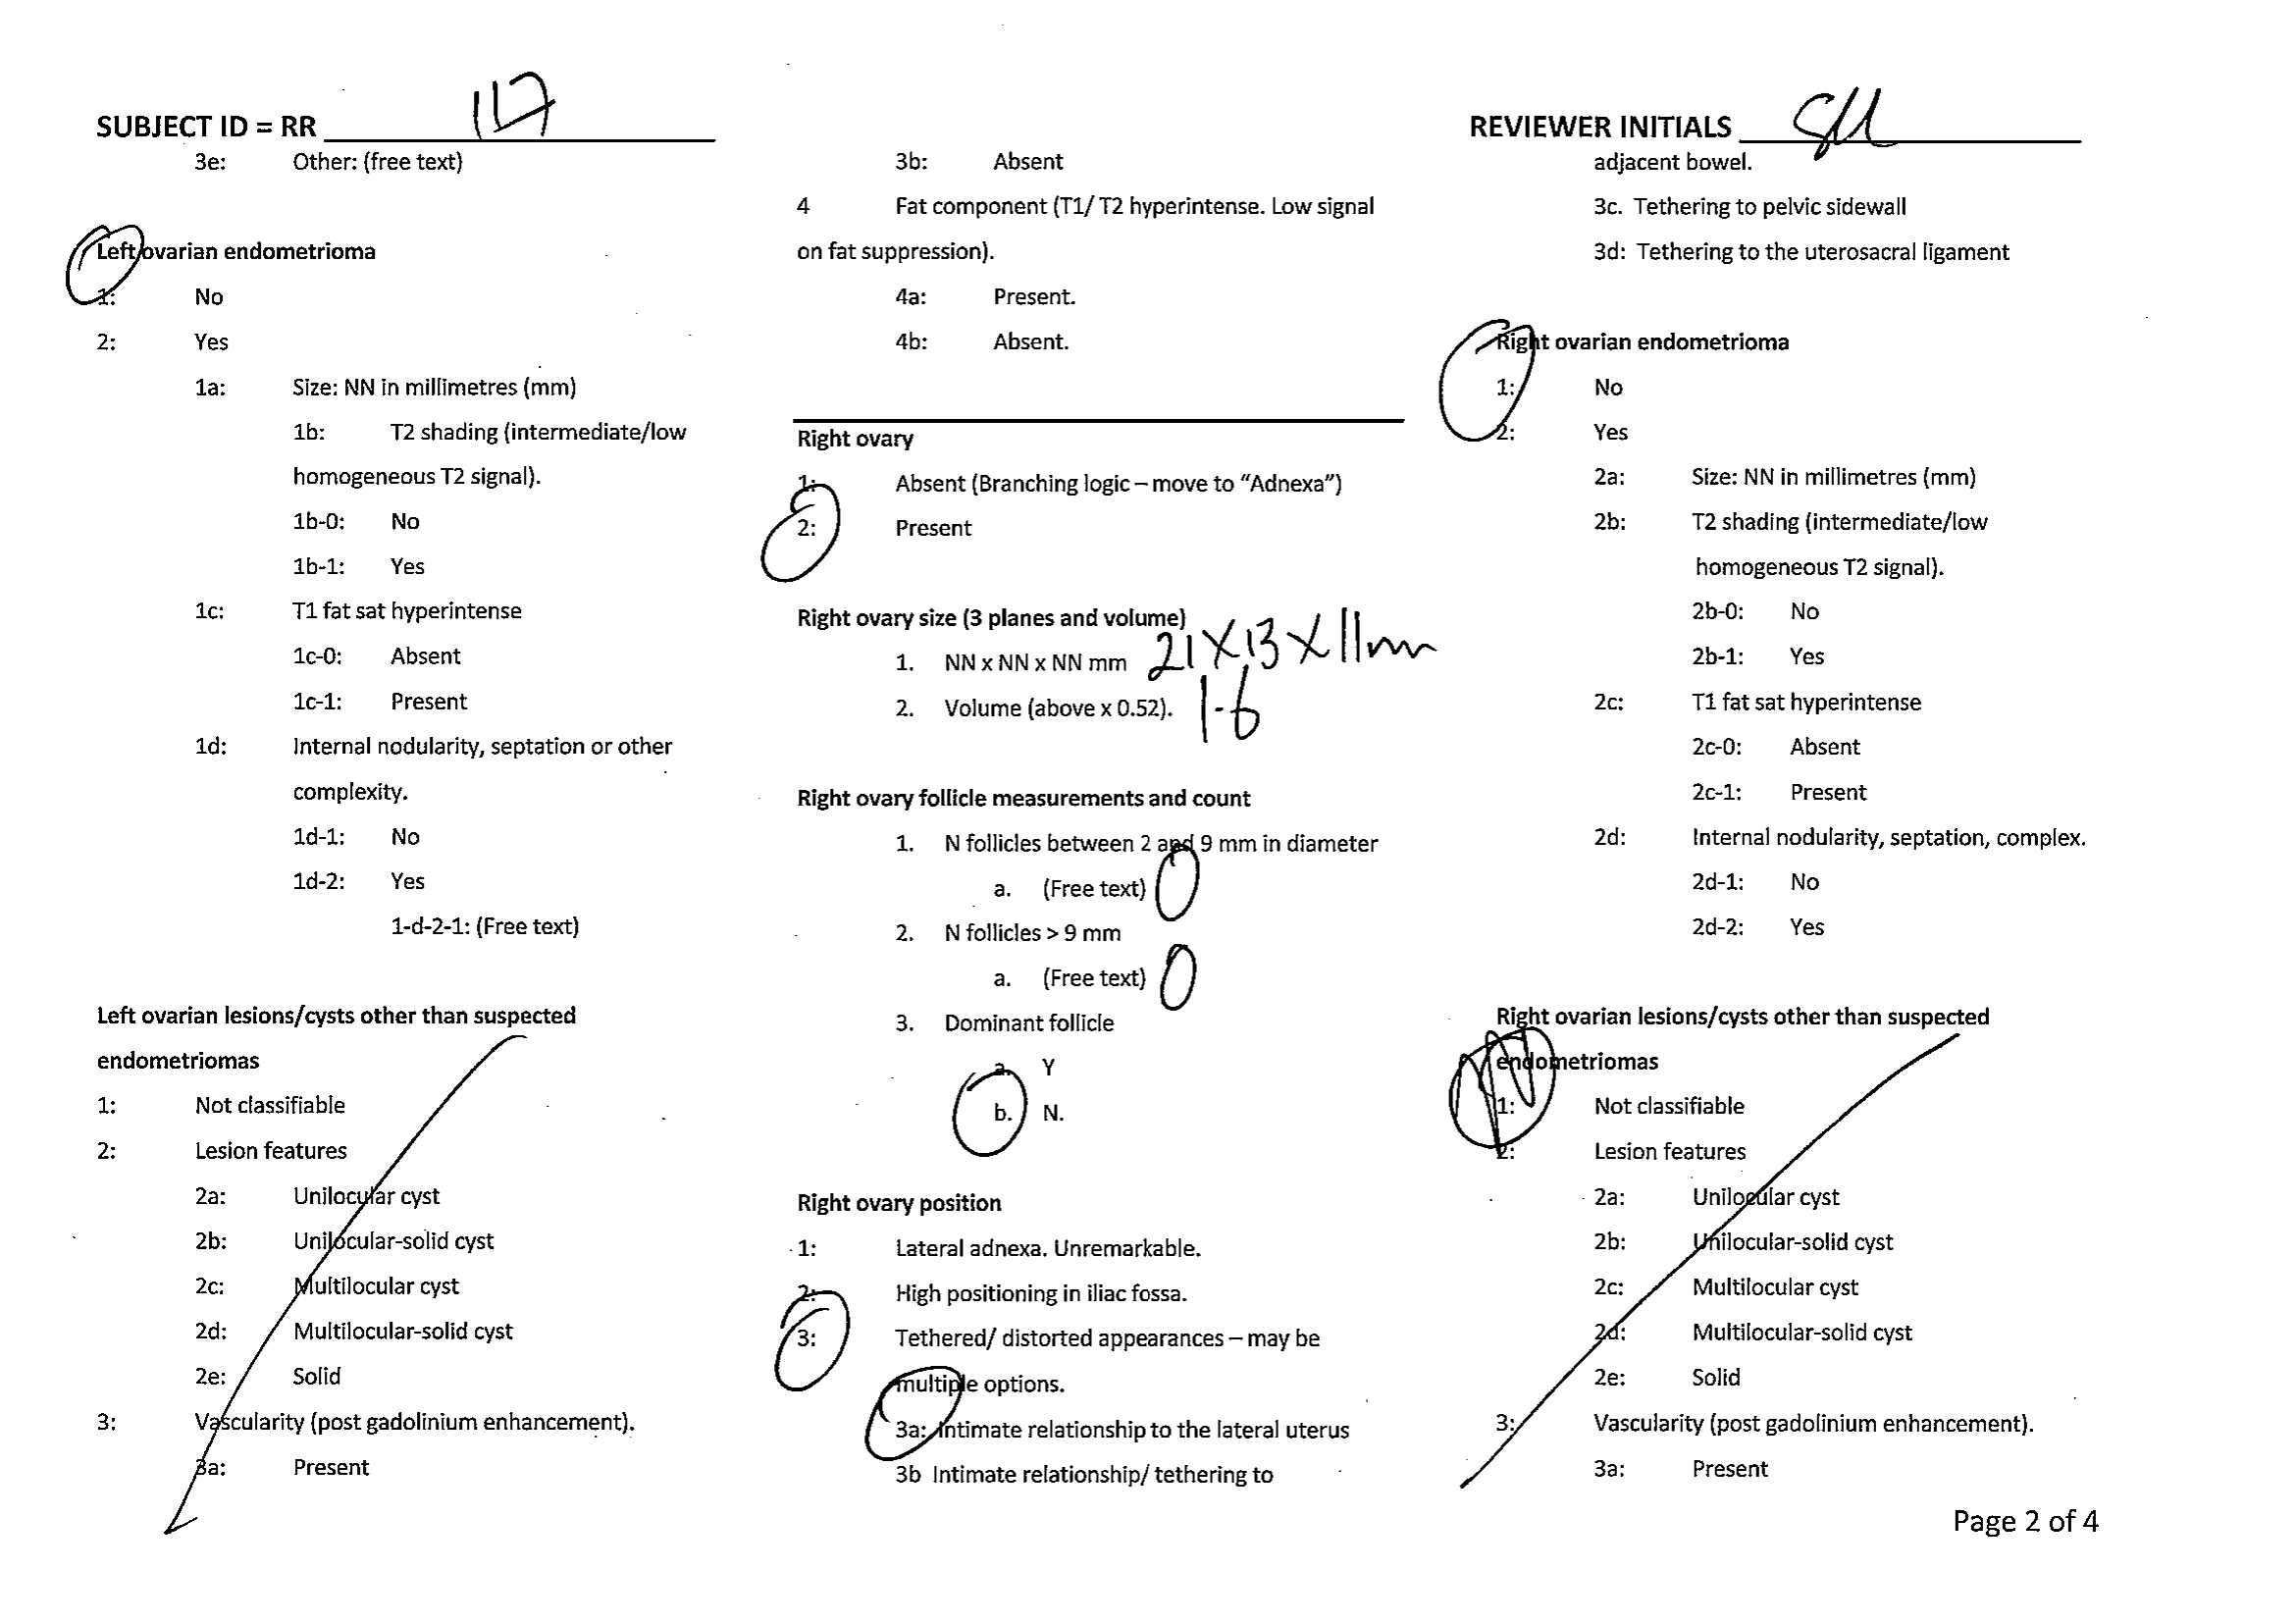 SUBJECT ID = RR 117
3e: Other: (free text)
Left ovarian endometrioma
1: No
2: Yes
1a: Size: NN in millimetres (mm)
1b: T2 shading (intermediate/low
homogeneous T2 signal).
1b-0: No
1b-1: Yes
1c: T1 fat sat hyperintense
1c-0: Absent
1c-1: Present
1d: Internal nodularity, septation or other
complexity.
1d-1: No
1d-2: Yes
1-d-2-1: (Free text)
Left ovarian lesions/cysts other than suspected
endometriomas
1: Not classifiable
2: Lesion features
2a: Unilocular cyst
2b: Unilocular-solid cyst
2c: Multilocular cyst
2d: Multilocular-solid cyst
2e: Solid
3: Vascularity (post gadolinium enhancement).
3a: Present
3b: Absent
4 Fat component (T1/ T2 hyperintense. Low signal
on fat suppression).
4a: Present.
4b: Absent.
Right ovary
1: Absent (Branching logic – move to “Adnexa”)
2: Present
Right ovary size (3 planes and volume)
1. NN x NN x NN mm 21 X 13 X 11mm
2. Volume (above x 0.52). 1.6
Right ovary follicle measurements and count
1. N follicles between 2 and 9 mm in diameter
a. (Free text) 0
2. N follicles > 9 mm
a. (Free text) 0
3. Dominant follicle
a. Y
b. N.
Right ovary position
1: Lateral adnexa. Unremarkable.
2: High positioning in iliac fossa.
3: Tethered/ distorted appearances – may be
multiple options.
3a: Intimate relationship to the lateral uterus
3b Intimate relationship/ tethering to
REVIEWER INITIALS
adjacent bowel.
3c. Tethering to pelvic sidewall
3d: Tethering to the uterosacral ligament
Right ovarian endometrioma
1: No
2: Yes
2a: Size: NN in millimetres (mm)
2b: T2 shading (intermediate/low
homogeneous T2 signal).
2b-0: No
2b-1: Yes
2c: T1 fat sat hyperintense
2c-0: Absent
2c-1: Present
2d: Internal nodularity, septation, complex.
2d-1: No
2d-2: Yes
Right ovarian lesions/cysts other than suspected
endometriomas
1: Not classifiable
2: Lesion features
2a: Unilocular cyst
2b: Unilocular-solid cyst
2c: Multilocular cyst
2d: Multilocular-solid cyst
2e: Solid
3: Vascularity (post gadolinium enhancement).
3a: Present
Page 2 of 4